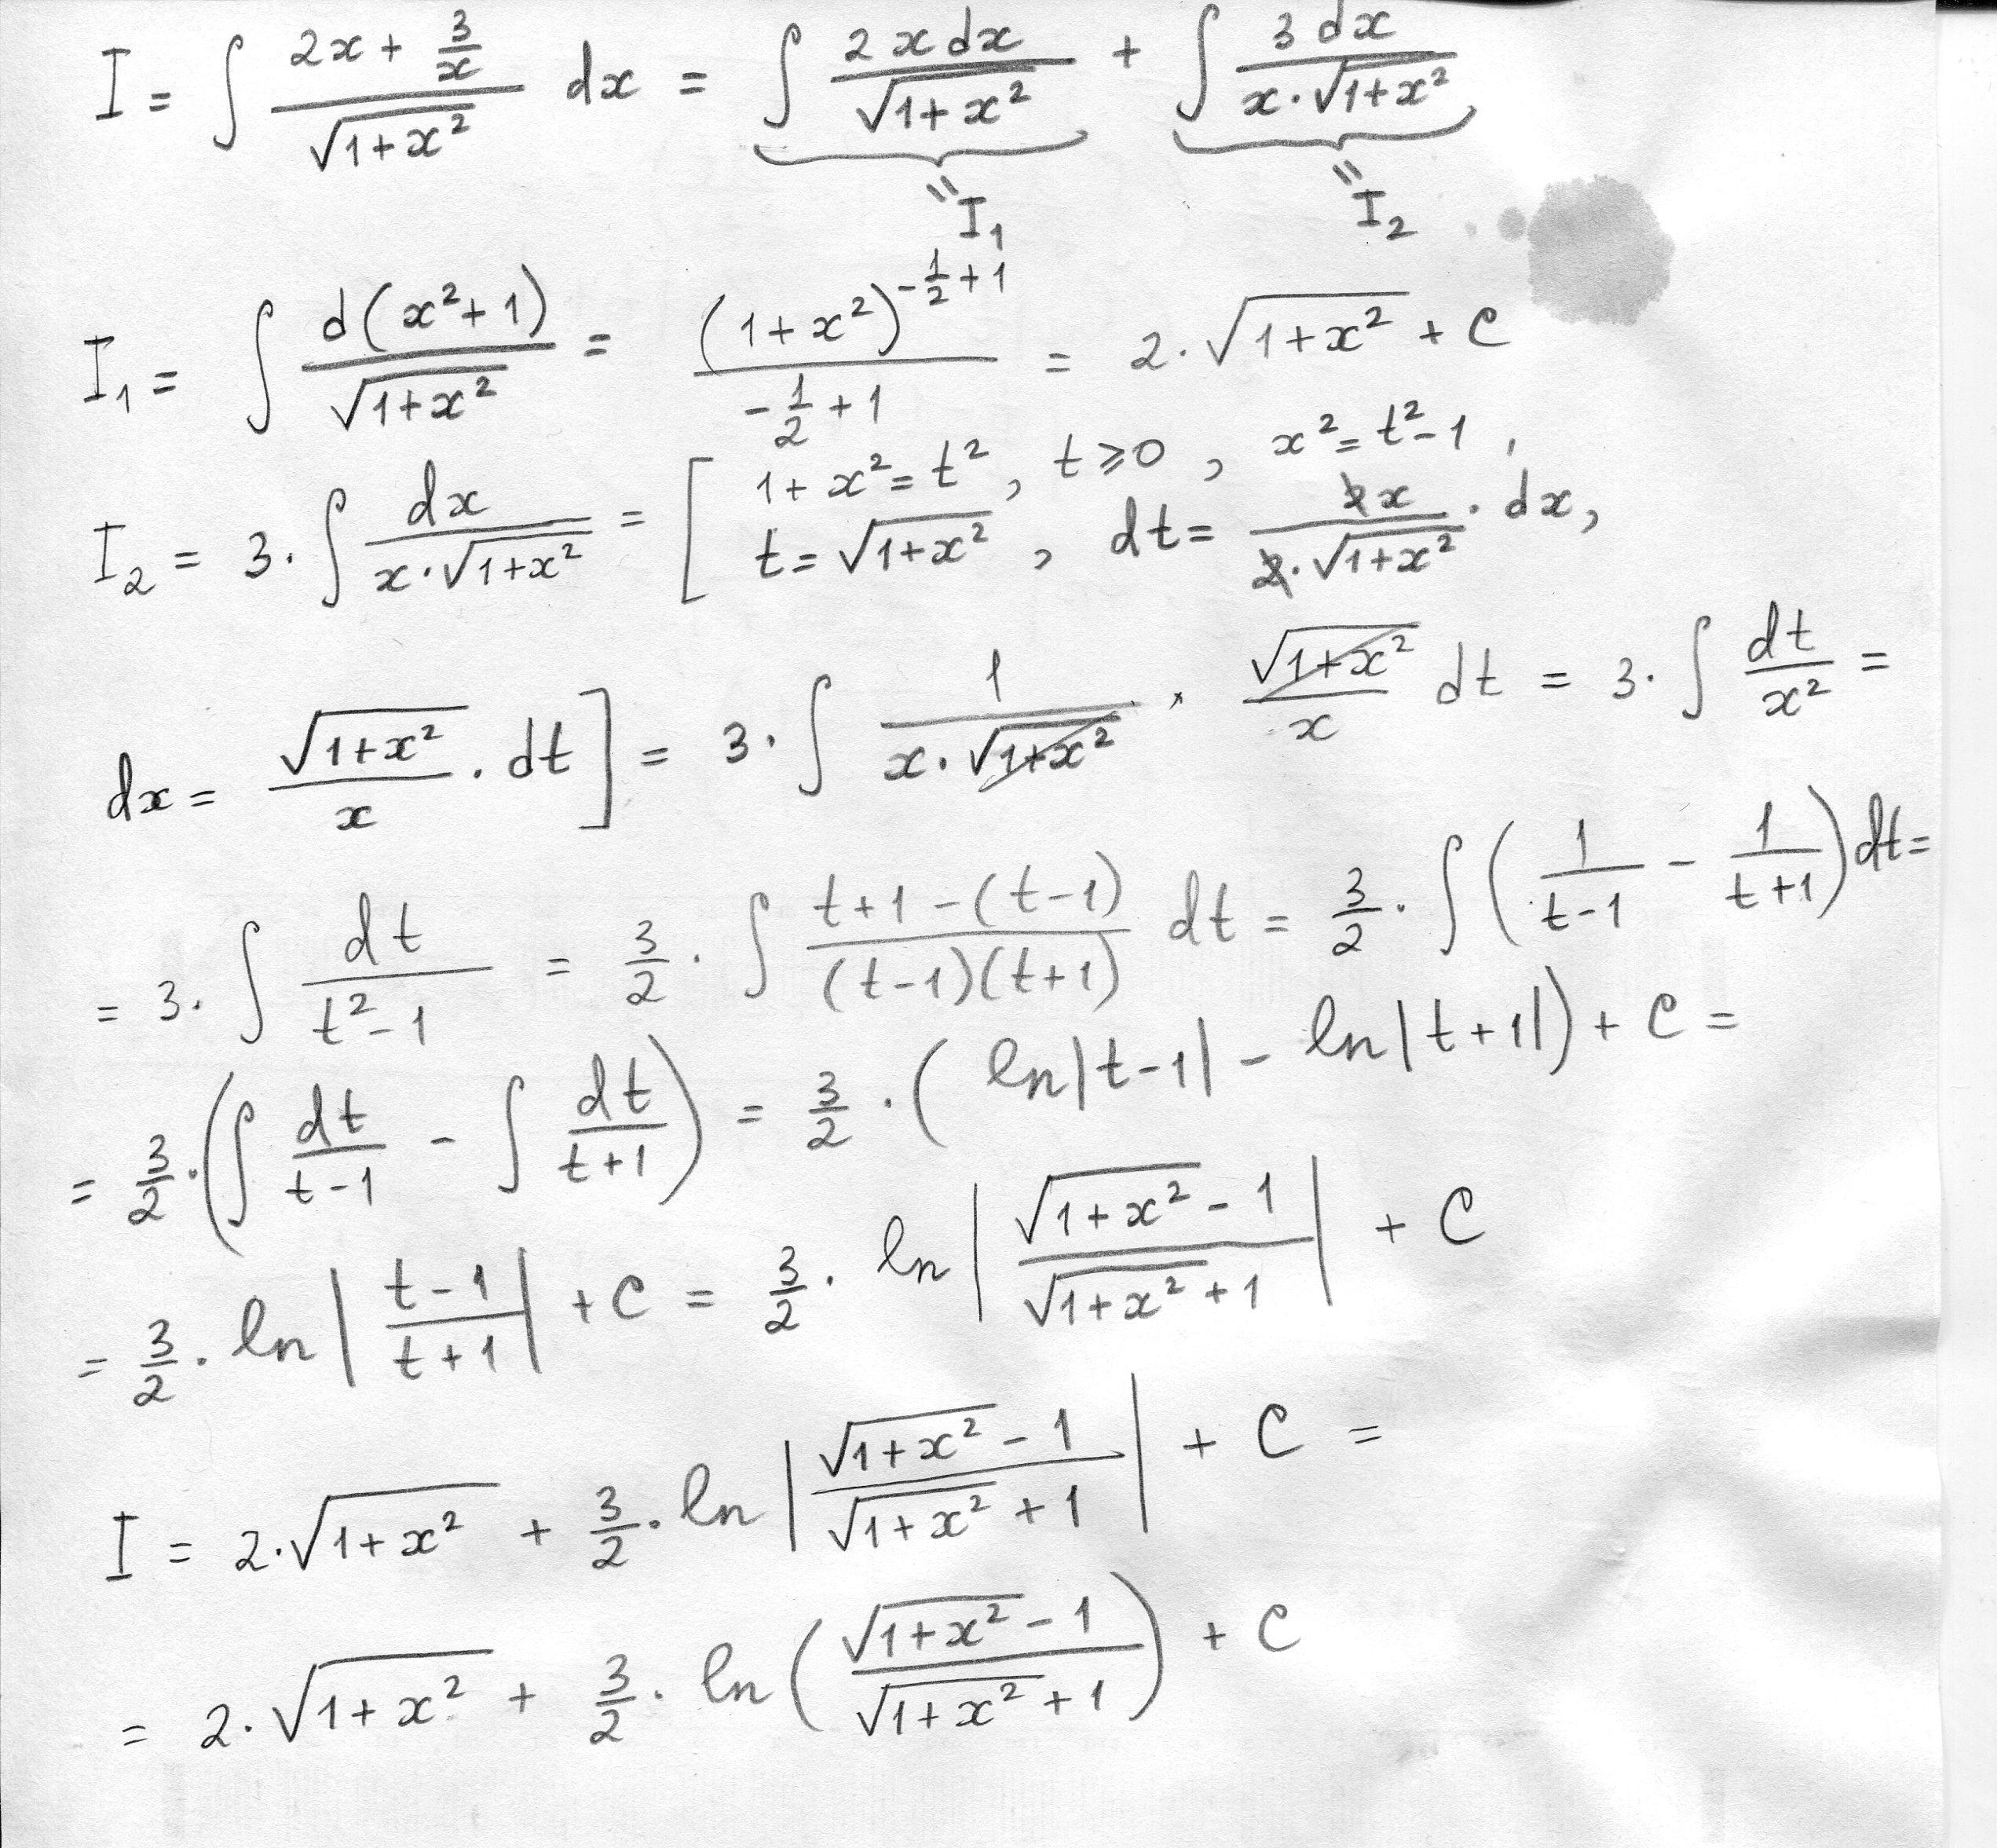 I = ∫ (2x + 3/x)/√(1+x²) dx = ∫ 2x dx/√(1+x²) + ∫ 3 dx/(x·√(1+x²))
= I₁ = I₂
I₁ = ∫ d(x²+1)/√(1+x²) = (1+x²)^(-1/2+1)/(-1/2+1) = 2·√(1+x²) + C
I₂ = 3·∫ dx/(x·√(1+x²)) = [ 1+x² = t², t ⩾ 0, x² = t²-1,
t = √(1+x²), dt = 2x/(2·√(1+x²)) · dx,
dx = √(1+x²)/x · dt ] = 3·∫ 1/(x·√(1+x²)) · √(1+x²)/x dt = 3·∫ dt/x² =
= 3·∫ dt/(t²-1) = 3/2 · ∫ (t+1-(t-1))/((t-1)(t+1)) dt = 3/2 · ∫ (1/(t-1) - 1/(t+1)) dt =
= 3/2 · (∫ dt/(t-1) - ∫ dt/(t+1)) = 3/2 · (ln|t-1| - ln|t+1|) + C =
= 3/2 · ln|(t-1)/(t+1)| + C = 3/2 · ln|(√(1+x²) - 1)/(√(1+x²) + 1)| + C
I = 2·√(1+x²) + 3/2 · ln|(√(1+x²) - 1)/(√(1+x²) + 1)| + C =
= 2·√(1+x²) + 3/2 · ln((√(1+x²) - 1)/(√(1+x²) + 1)) + C